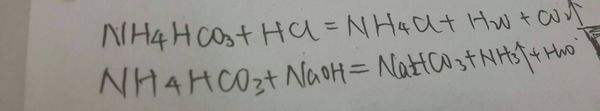 NH4HCO3+HCl=NH4Cl+H2O+CO2↑
NH4HCO3+NaOH=NaHCO3+NH3↑+H2O